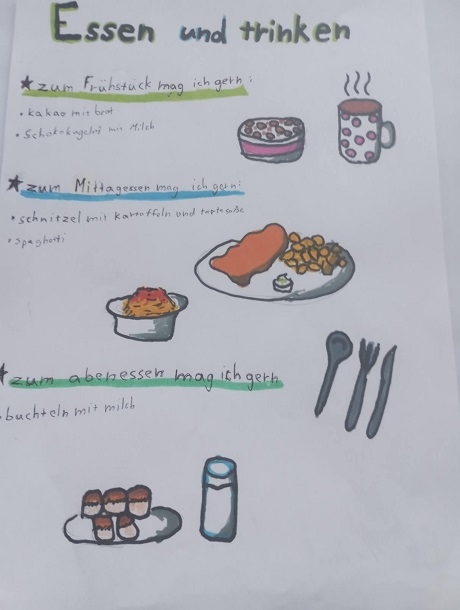 Essen und trinken
★ zum Frühstück mag ich gern:
• kakao mit brot
• Schokokugeln mit Milch
★ zum Mittagessen mag ich gern:
• schnitzel mit kartoffeln und
• spaghetti
★ zum abenessen mag ich gern
• buchteln mit milch